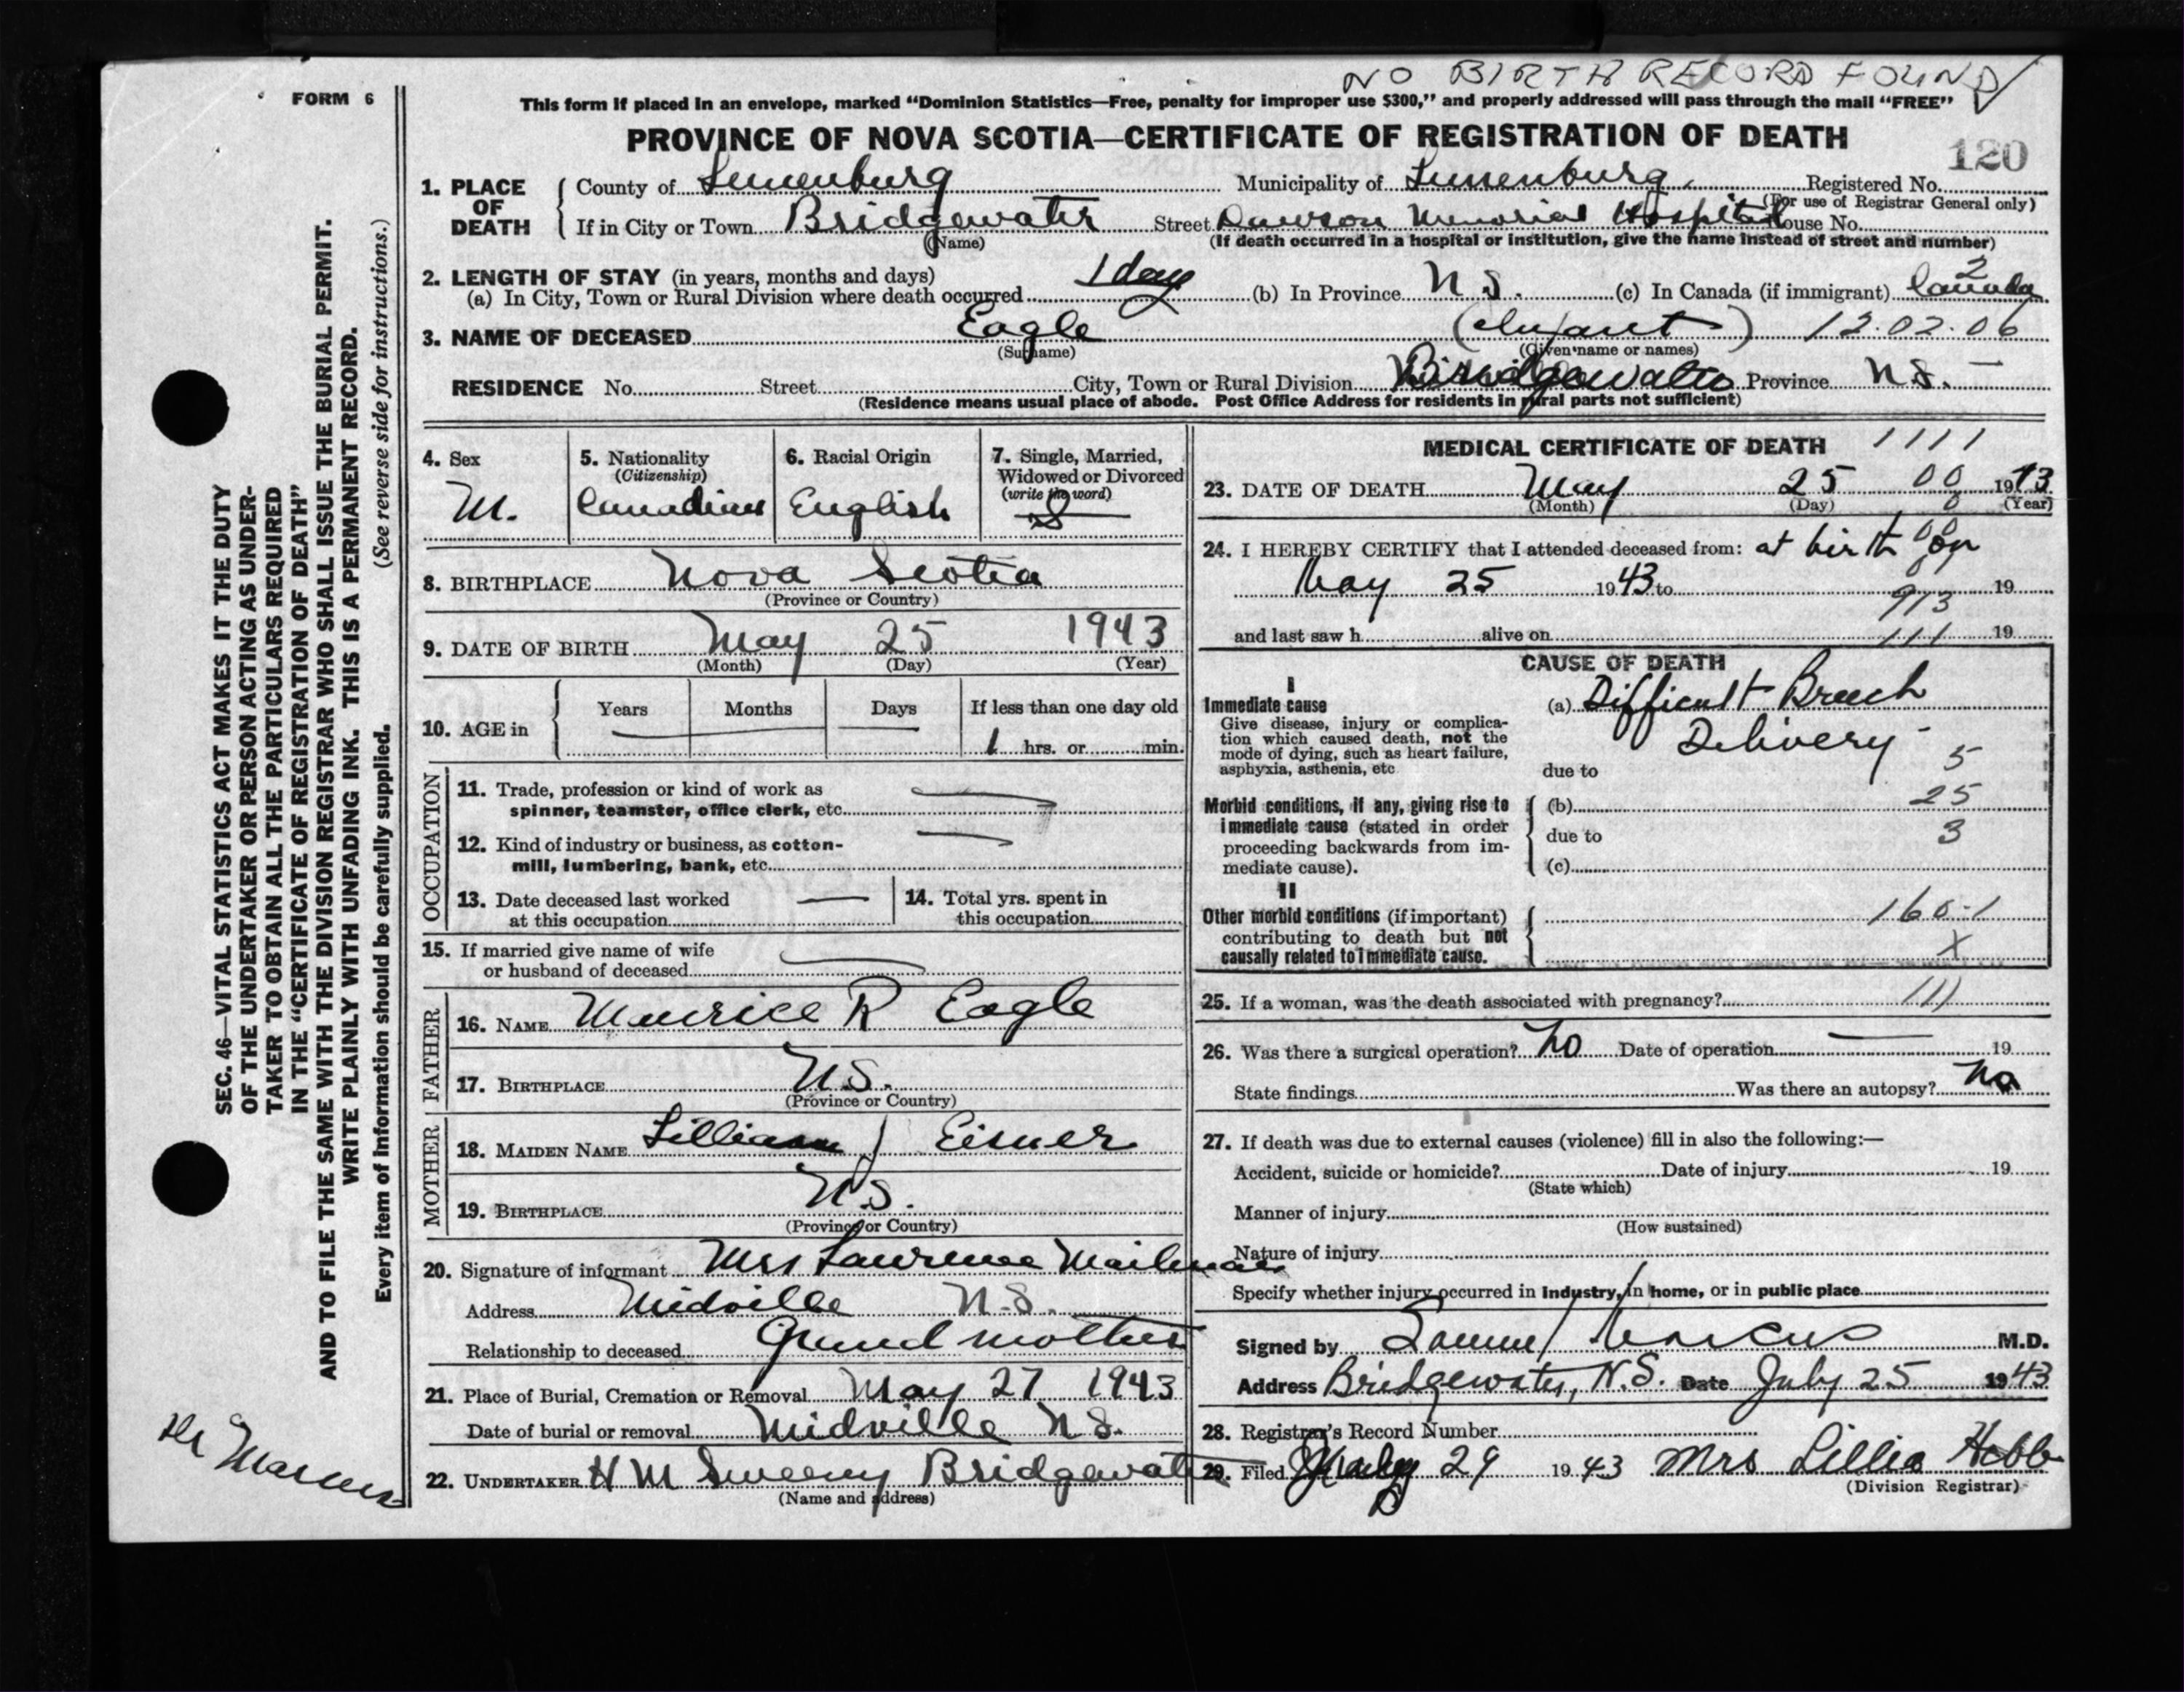 NO BIRTH RECORD FOUND
FORM 6
This form if placed in an envelope, marked “Dominion Statistics—Free, penalty for improper use $300,” and properly addressed will pass through the mail “FREE”
PROVINCE OF NOVA SCOTIA—CERTIFICATE OF REGISTRATION OF DEATH
120
1. PLACE OF DEATH County of Lunenburg Municipality of Lunenburg Registered No.
(For use of Registrar General only)
If in City or Town Bridgewater Street Dawson Memorial Hospital House No.
(Name) (If death occurred in a hospital or institution, give the name instead of street and number)
2. LENGTH OF STAY (in years, months and days)
(a) In City, Town or Rural Division where death occurred 1 day (b) In Province N.S. (c) In Canada (if immigrant) Canada 2
3. NAME OF DECEASED Eagle (Infant) 12.02.06
(Surname) (Given name or names)
RESIDENCE No. Street City, Town or Rural Division Bridgewater Province N.S. —
(Residence means usual place of abode. Post Office Address for residents in rural parts not sufficient)
4. Sex M.
5. Nationality (Citizenship) Canadian
6. Racial Origin English
7. Single, Married, Widowed or Divorced (write the word) S
8. BIRTHPLACE Nova Scotia
(Province or Country)
9. DATE OF BIRTH May 25 1943
(Month) (Day) (Year)
10. AGE in Years Months Days If less than one day old
1 hrs. or min.
OCCUPATION
11. Trade, profession or kind of work as
spinner, teamster, office clerk, etc.
12. Kind of industry or business, as cotton-
mill, lumbering, bank, etc.
13. Date deceased last worked
at this occupation
14. Total yrs. spent in
this occupation
15. If married give name of wife
or husband of deceased
FATHER
16. NAME Maurice R Eagle
17. BIRTHPLACE N.S.
(Province or Country)
MOTHER
18. MAIDEN NAME Lillian / Eisner
19. BIRTHPLACE N.S.
(Province or Country)
20. Signature of informant Mrs Lawrence Mailman
Address Midville N.S.
Relationship to deceased Grand mother
21. Place of Burial, Cremation or Removal May 27 1943
Date of burial or removal Midville N.S.
22. UNDERTAKER H M Sweeny Bridgewater
(Name and address)
MEDICAL CERTIFICATE OF DEATH 1111
23. DATE OF DEATH May 25 00 1943
(Month) (Day) 0 (Year)
24. I HEREBY CERTIFY that I attended deceased from: at birth on
May 25 1943 to 913 19
and last saw h alive on 111 19
CAUSE OF DEATH
I
Immediate cause (a) Difficult Breech
Give disease, injury or complica-
tion which caused death, not the Delivery
mode of dying, such as heart failure,
asphyxia, asthenia, etc due to 5
Morbid conditions, if any, giving rise to (b) 25
immediate cause (stated in order due to 3
proceeding backwards from im-
mediate cause). (c)
II
Other morbid conditions (if important) 160.1
contributing to death but not
causally related to immediate cause. X
25. If a woman, was the death associated with pregnancy? 111
26. Was there a surgical operation? No Date of operation — 19
State findings Was there an autopsy? No
27. If death was due to external causes (violence) fill in also the following:—
Accident, suicide or homicide? Date of injury 19
(State which)
Manner of injury
(How sustained)
Nature of injury
Specify whether injury occurred in industry, in home, or in public place
Signed by Samuel Marcus M.D.
Address Bridgewater, N.S. Date July 25 1943
28. Registrar's Record Number
29. Filed 29 1943 Mrs Lillia Hebb
(Division Registrar)
SEC. 46—VITAL STATISTICS ACT MAKES IT THE DUTY
OF THE UNDERTAKER OR PERSON ACTING AS UNDER-
TAKER TO OBTAIN ALL THE PARTICULARS REQUIRED
IN THE “CERTIFICATE OF REGISTRATION OF DEATH”
AND TO FILE THE SAME WITH THE DIVISION REGISTRAR WHO SHALL ISSUE THE BURIAL PERMIT.
WRITE PLAINLY WITH UNFADING INK. THIS IS A PERMANENT RECORD.
Every item of information should be carefully supplied. (See reverse side for instructions.)
Dr Marcus